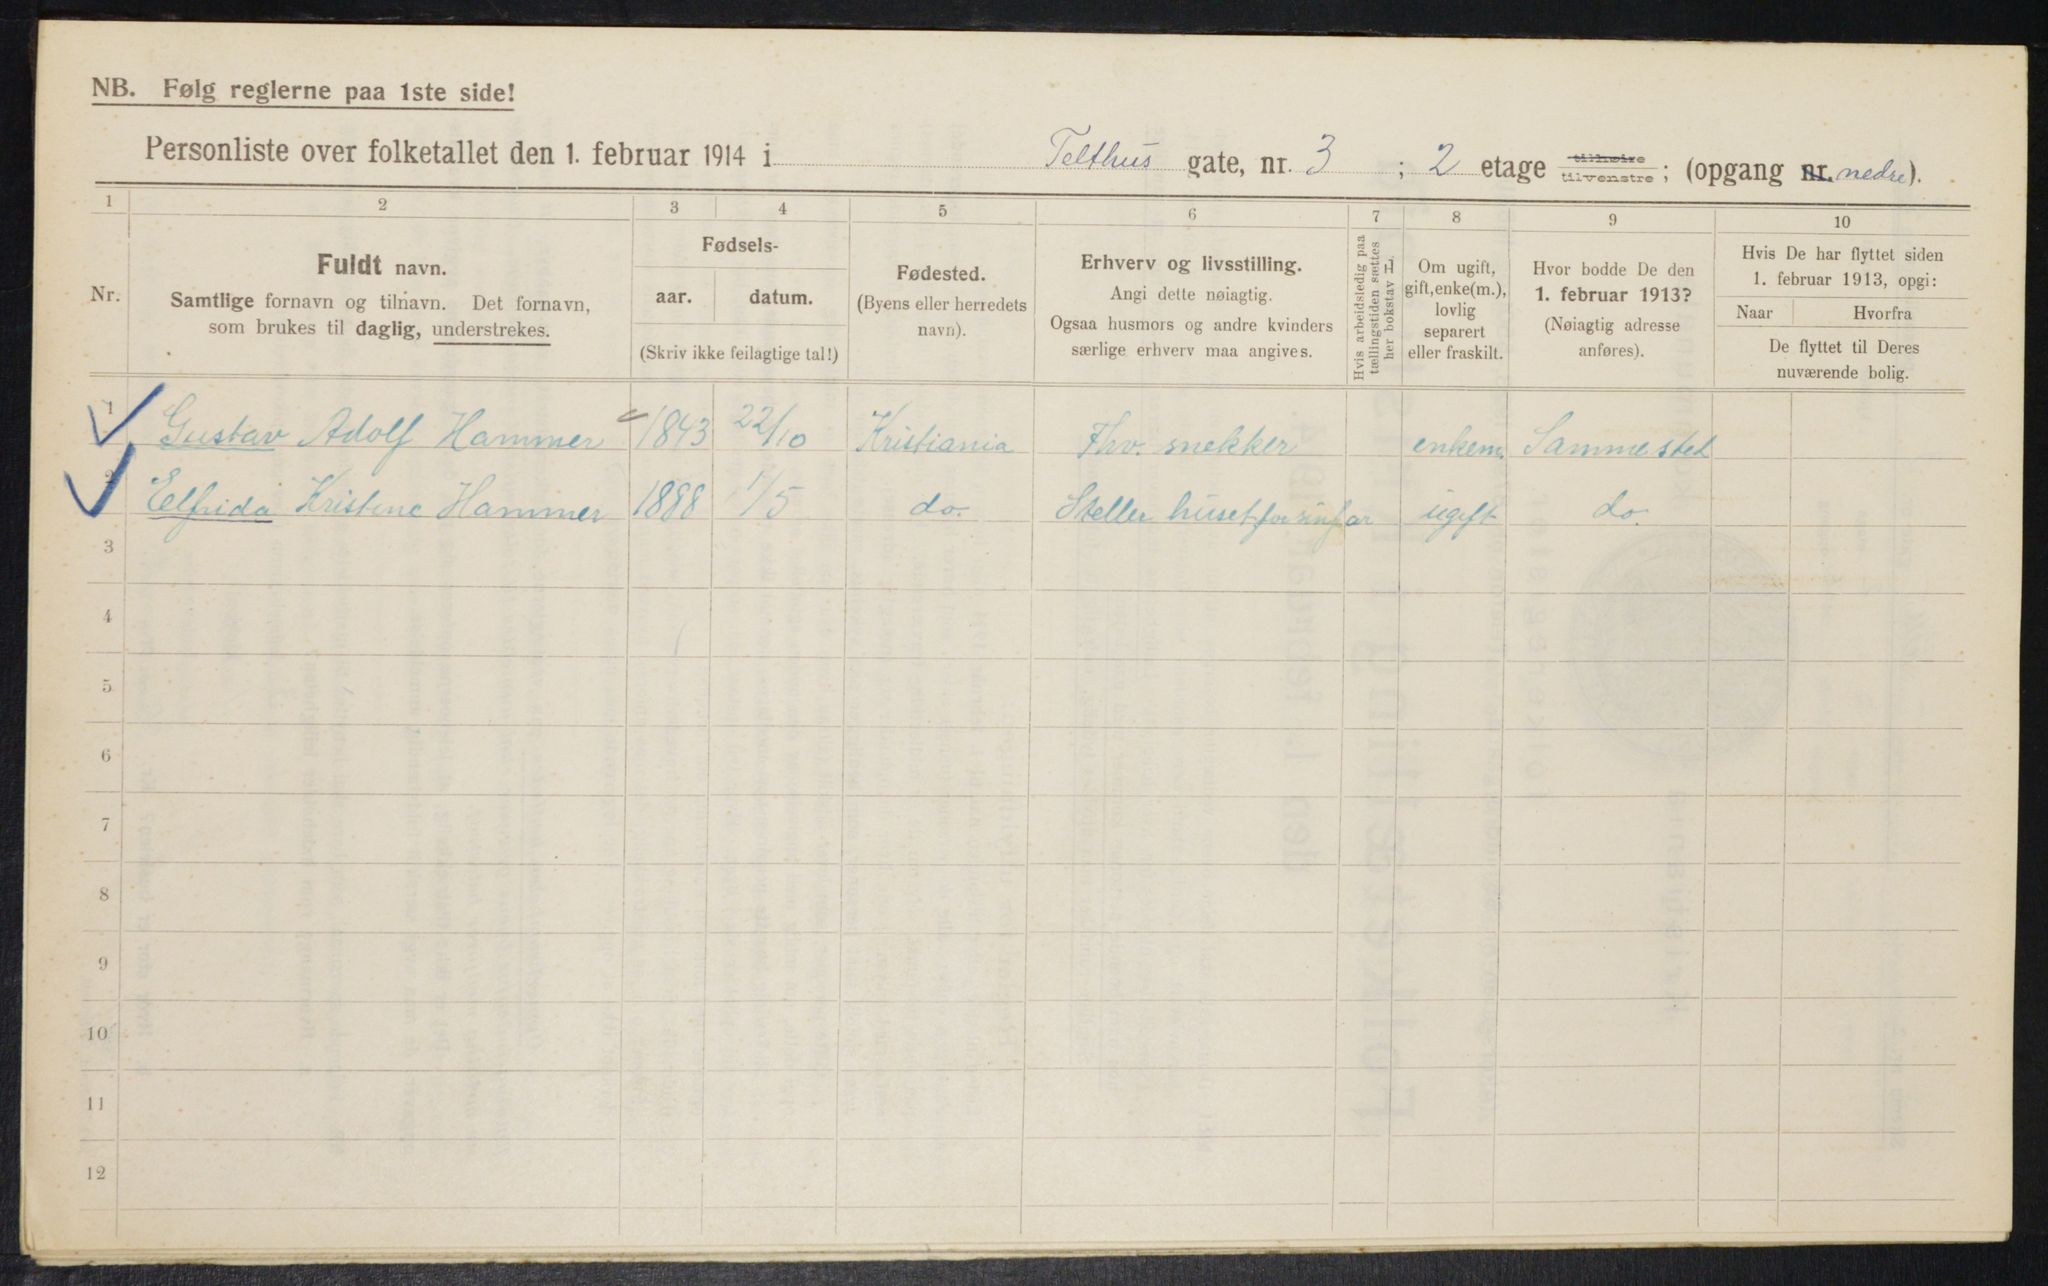 NB. Følg reglerne paa 1ste side!
Personliste over folketallet den 1. februar 1914 i Telthus gate, nr. 3 ; 2 etage tilhøire tilvenstre ; (opgang nr. nedre).
1 2 3 4 5 6 7 8 9 10
Nr.
Fuldt navn.
Samtlige fornavn og tilnavn. Det fornavn,
som brukes til daglig, understrekes.
Fødsels-
aar. datum.
(Skriv ikke feilagtige tal!)
Fødested.
(Byens eller herredets
navn).
Erhverv og livsstilling.
Angi dette nøiagtig.
Ogsaa husmors og andre kvinders
særlige erhverv maa angives.
Hvis arbeidsledig paa
tællingstiden sættes
her bokstav L.
Om ugift,
gift, enke(m.),
lovlig
separert
eller fraskilt.
Hvor bodde De den
1. februar 1913?
(Nøiagtig adresse
anføres).
Hvis De har flyttet siden
1. februar 1913, opgi:
Naar Hvorfra
De flyttet til Deres
nuværende bolig.
1 Gustav Adolf Hammer 1843 22/10 Kristiania Fhv. snekker enkem. Sammested
2 Elfrida Kristine Hammer 1888 1/5 do. Steller huset for sin far ugift do.
3
4
5
6
7
8
9
10
11
12